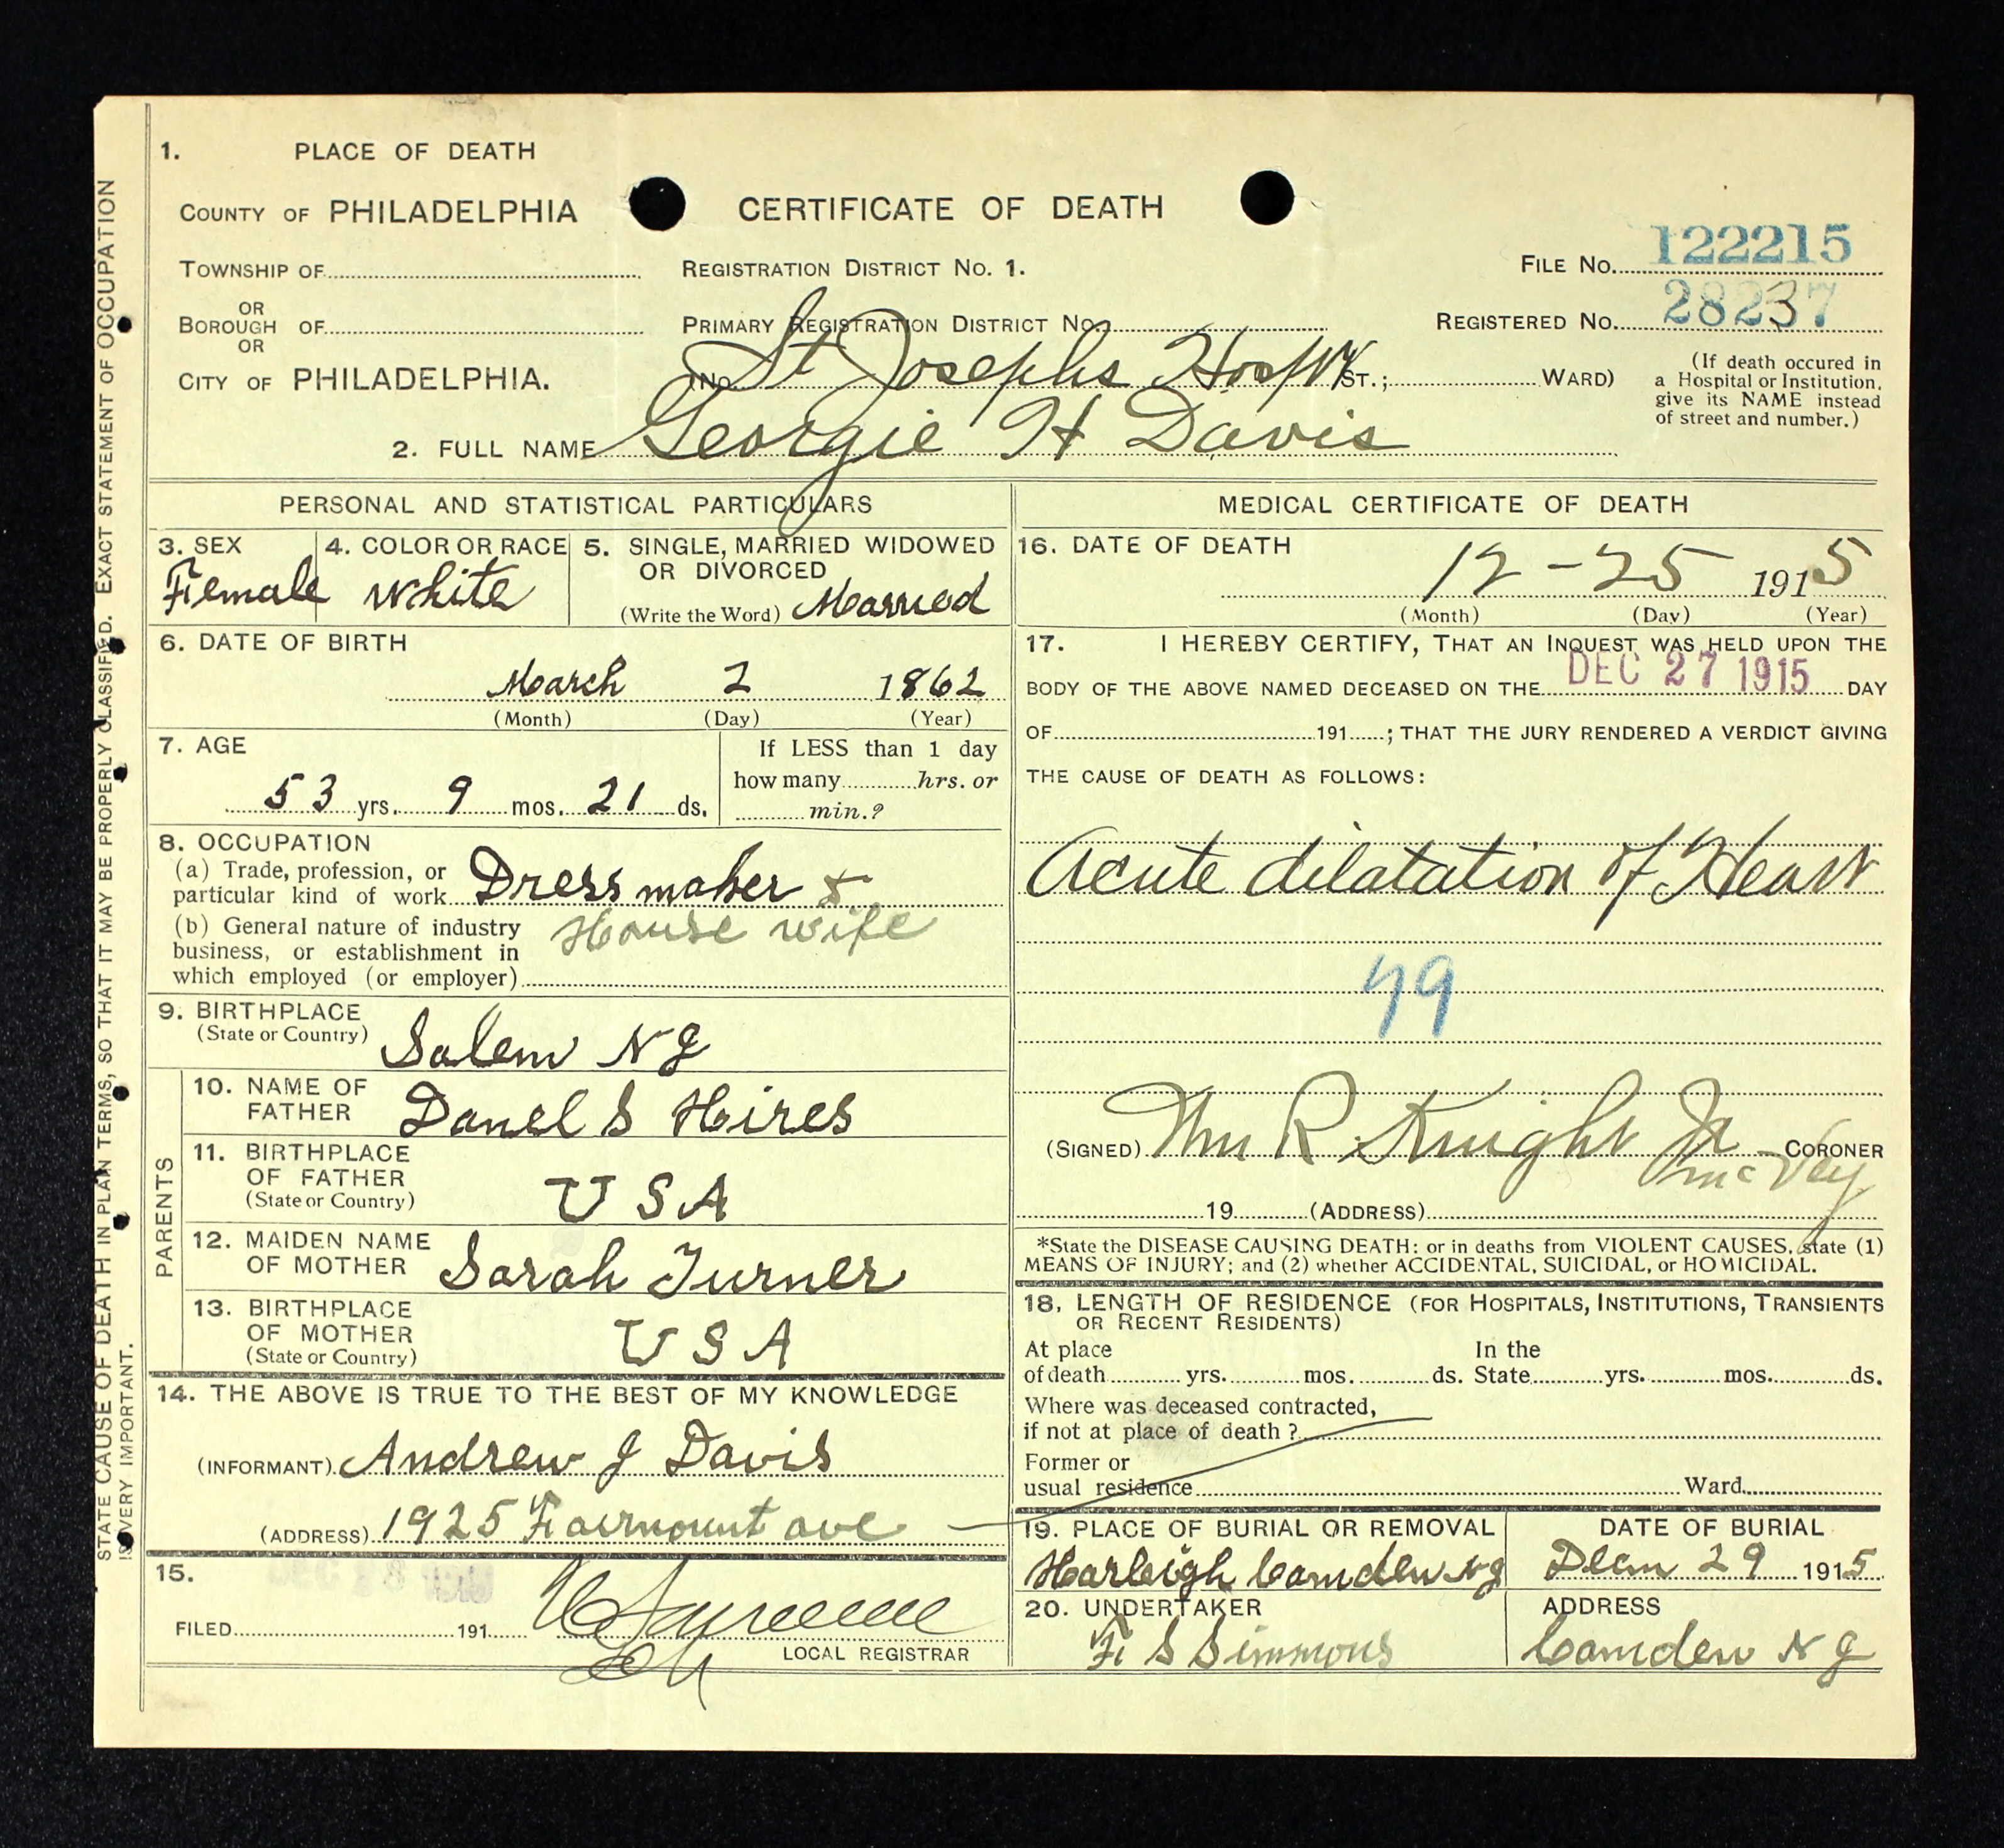 1. PLACE OF DEATH
COUNTY OF PHILADELPHIA
CERTIFICATE OF DEATH
TOWNSHIP OF
REGISTRATION DISTRICT NO. 1.
FILE NO. 122215
OR
BOROUGH OF
OR
PRIMARY REGISTRATION DISTRICT NO.
REGISTERED NO. 28237
CITY OF PHILADELPHIA.
(NO. St Josephs Hospit ST.; WARD)
(If death occured in
a Hospital or Institution,
give its NAME instead
of street and number.)
2. FULL NAME Georgie H Davis
PERSONAL AND STATISTICAL PARTICULARS
3. SEX
Female
4. COLOR OR RACE
White
5. SINGLE, MARRIED WIDOWED
OR DIVORCED
(Write the Word) Married
6. DATE OF BIRTH
March 2 1862
(Month) (Day) (Year)
7. AGE
53 yrs. 9 mos. 21 ds.
If LESS than 1 day
how many hrs. or
min.?
8. OCCUPATION
(a) Trade, profession, or
particular kind of work Dressmaker &
(b) General nature of industry
business, or establishment in
which employed (or employer)
House wife
9. BIRTHPLACE
(State or Country) Salem NJ
PARENTS
10. NAME OF
FATHER Danel S Hires
11. BIRTHPLACE
OF FATHER
(State or Country) U S A
12. MAIDEN NAME
OF MOTHER Sarah Turner
13. BIRTHPLACE
OF MOTHER
(State or Country) U S A
14. THE ABOVE IS TRUE TO THE BEST OF MY KNOWLEDGE
(INFORMANT) Andrew J Davis
(ADDRESS) 1925 Fairmount ave
15.
FILED 191
LOCAL REGISTRAR
MEDICAL CERTIFICATE OF DEATH
16. DATE OF DEATH
12 - 25 1915
(Month) (Day) (Year)
17. I HEREBY CERTIFY, THAT AN INQUEST WAS HELD UPON THE
BODY OF THE ABOVE NAMED DECEASED ON THE DEC 27 1915 DAY
OF 191 ; THAT THE JURY RENDERED A VERDICT GIVING
THE CAUSE OF DEATH AS FOLLOWS:
Acute dilatation of Heart
79
(SIGNED) Wm R Knight Jr CORONER
McVey
19 (ADDRESS)
*State the DISEASE CAUSING DEATH: or in deaths from VIOLENT CAUSES, state (1)
MEANS OF INJURY; and (2) whether ACCIDENTAL, SUICIDAL, or HOMICIDAL.
18. LENGTH OF RESIDENCE (FOR HOSPITALS, INSTITUTIONS, TRANSIENTS
OR RECENT RESIDENTS)
At place
of death yrs. mos. ds.
In the
State yrs. mos. ds.
Where was deceased contracted,
if not at place of death ?
Former or
usual residence Ward
19. PLACE OF BURIAL OR REMOVAL
Harleigh Camden NJ
DATE OF BURIAL
29 1915
20. UNDERTAKER
F S Simmons
ADDRESS
Camden N J
STATE CAUSE OF DEATH IN PLAIN TERMS, SO THAT IT MAY BE PROPERLY CLASSIFIED. EXACT STATEMENT OF OCCUPATION
IS VERY IMPORTANT.